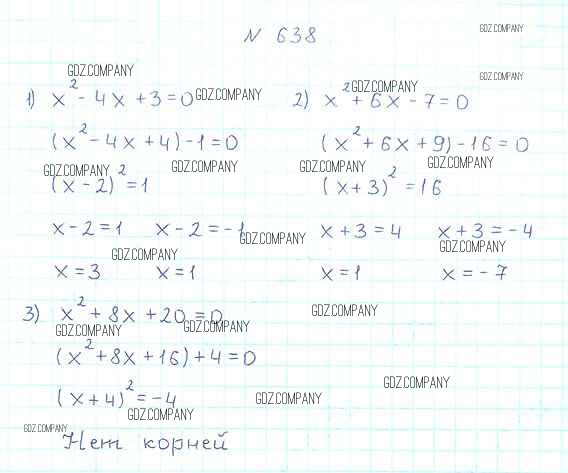 N 638
GDZ.COMPANY
GDZ.COMPANY
GDZ.COMPANY
1) x² - 4x + 3 = 0 GDZ.COMPANY
(x² - 4x + 4) - 1 = 0
GDZ.COMPANY GDZ.COMPANY
(x - 2)² = 1
x - 2 = 1 x - 2 = -1
GDZ.COMPANY
GDZ.COMPANY
x = 3 x = 1
GDZ.COMPANY
2) x² + 6x - 7 = 0
(x² + 6x + 9) - 16 = 0
GDZ.COMPANY GDZ.COMPANY
(x + 3)² = 16
x + 3 = 4 x + 3 = -4
GDZ.COMPANY
x = 1 x = -7
3) x² + 8x + 20 = 0
GDZ.COMPANY GDZ.COMPANY GDZ.COMPANY
(x² + 8x + 16) + 4 = 0
(x + 4)² = -4
GDZ.COMPANY GDZ.COMPANY GDZ.COMPANY
GDZ.COMPANY
Нет корней